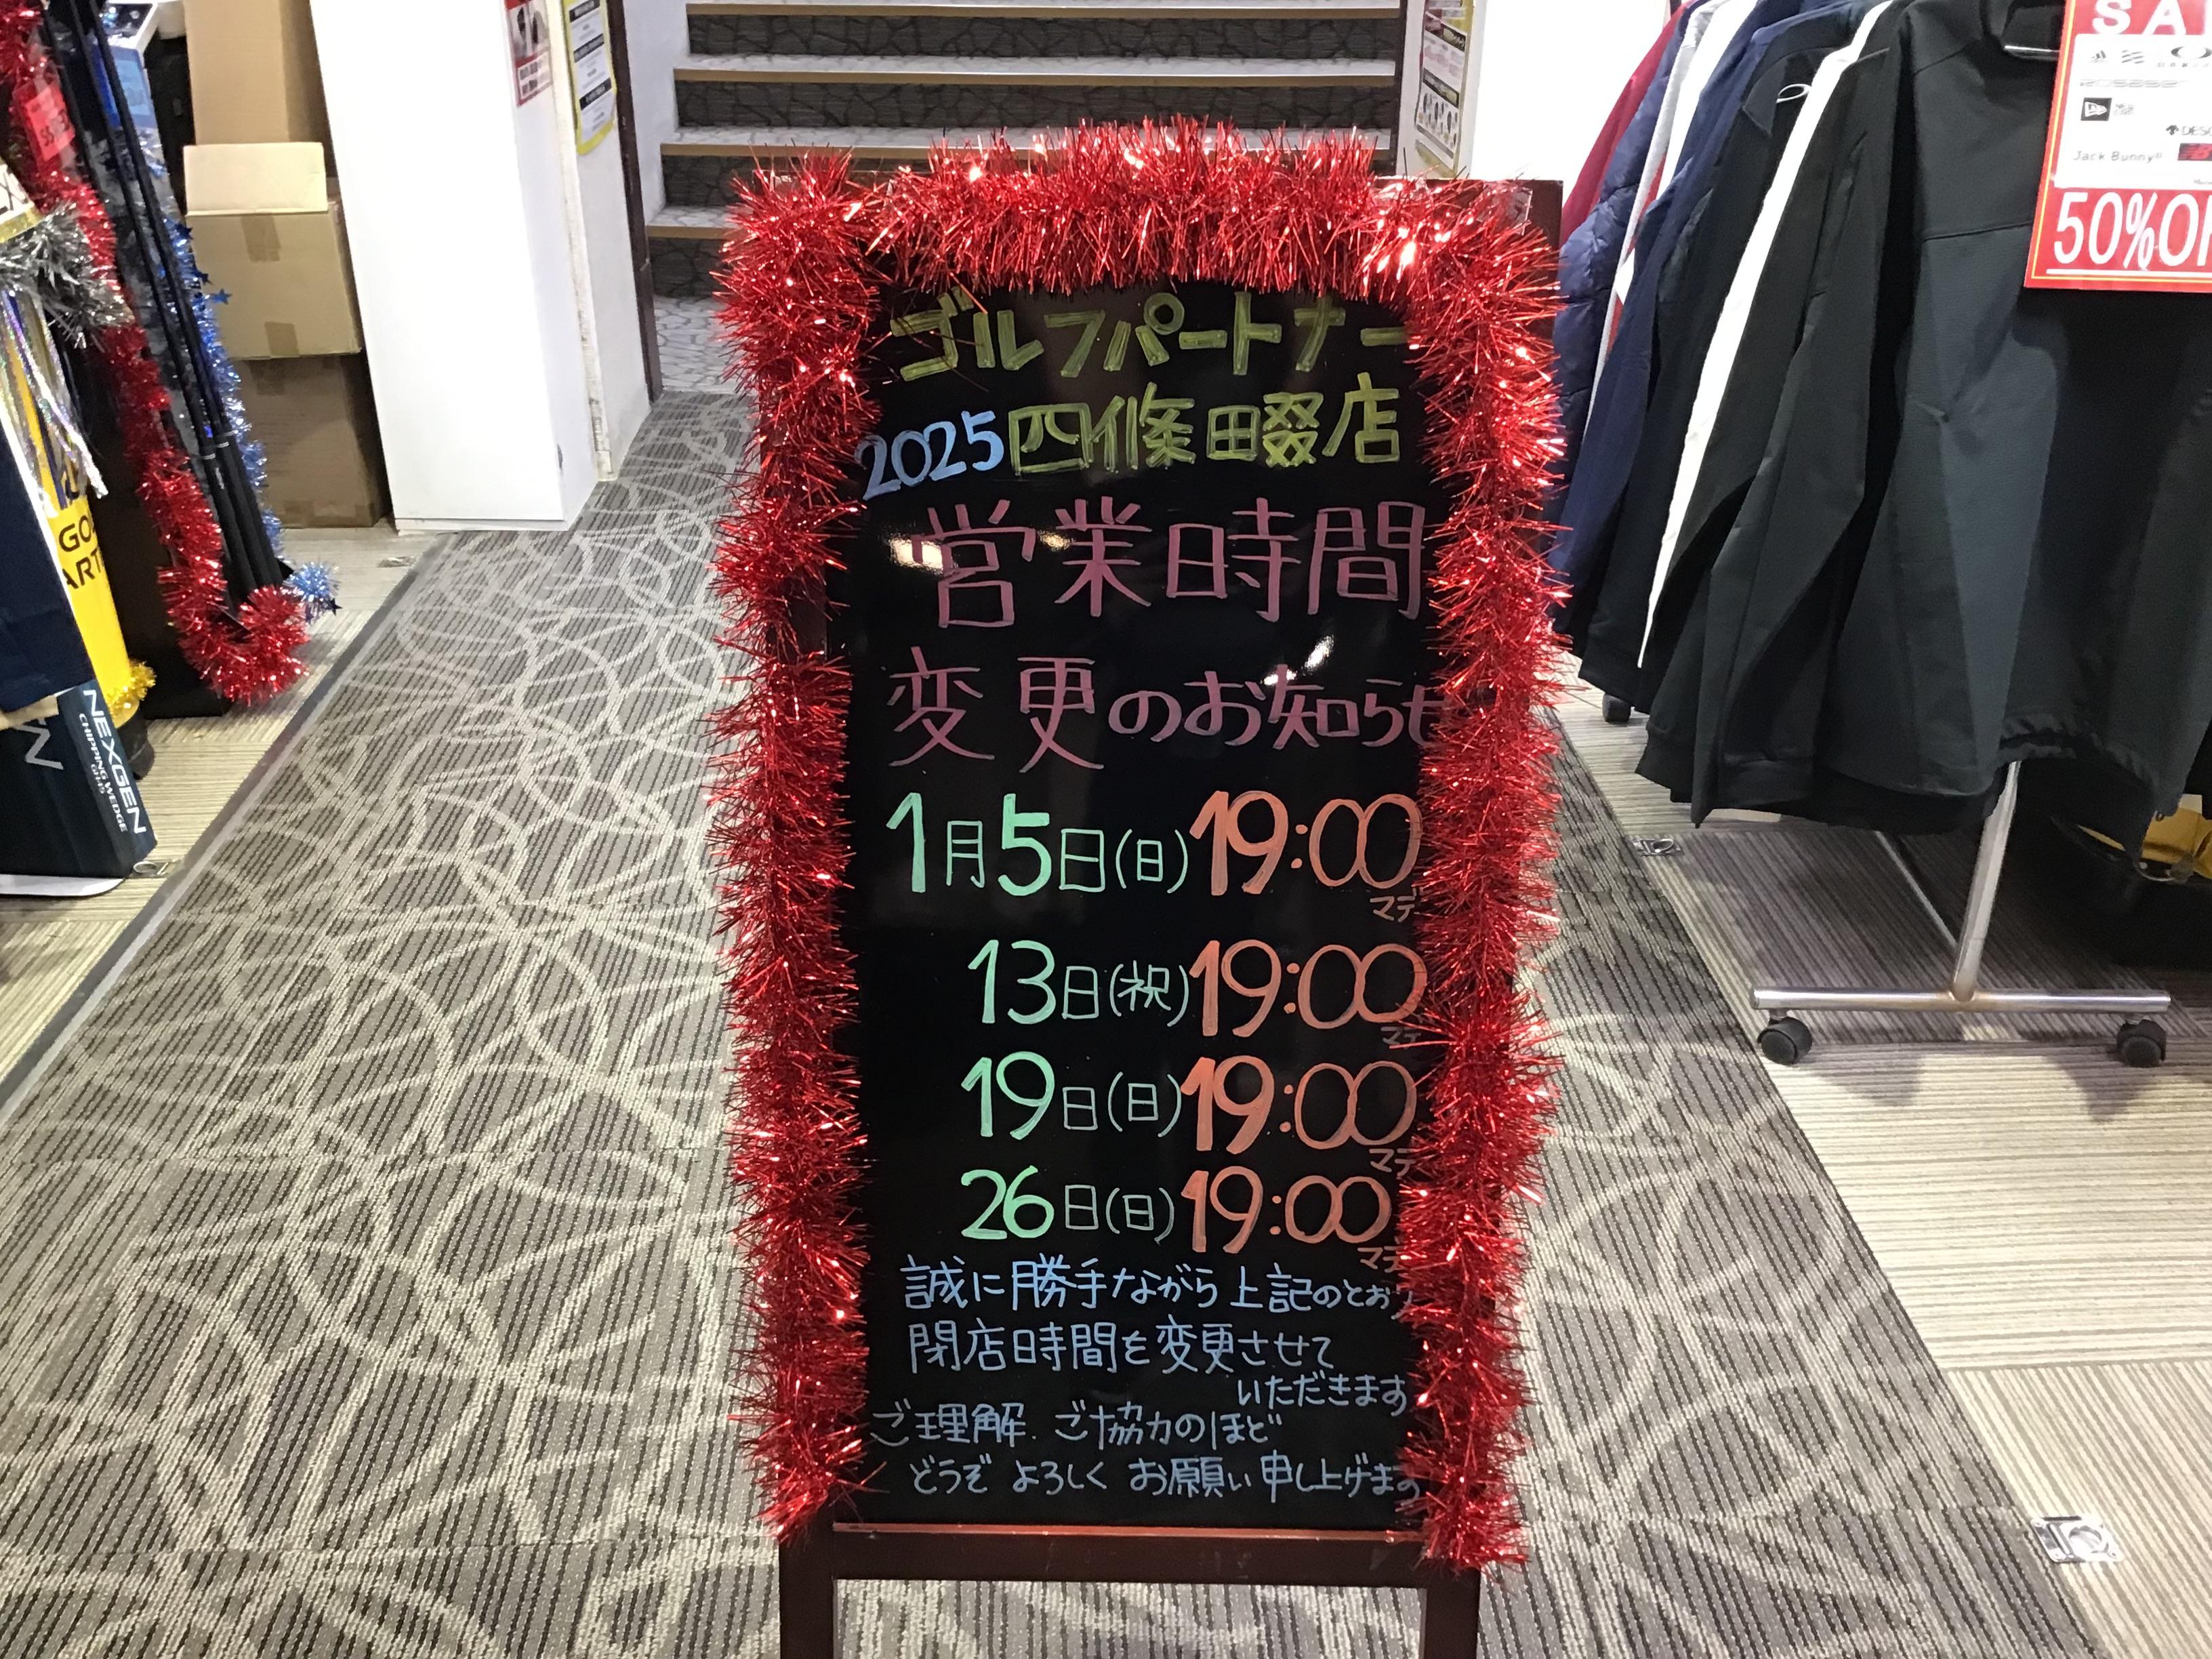 ゴルフパートナー
2025四條畷店
営業時間
変更のお知らせ
1月5日(日)19:00
マデ
13日(祝)19:00
マデ
19日(日)19:00
マデ
26日(日)19:00
マデ
誠に勝手ながら上記のとおり
閉店時間を変更させて
いただきます
ご理解.ご協力のほど
どうぞ よろしく お願い申し上げます
NEXGEN
CHIPPING WEDGE
SA
DES
Jack Bunny!!
50%OF
GO
ART